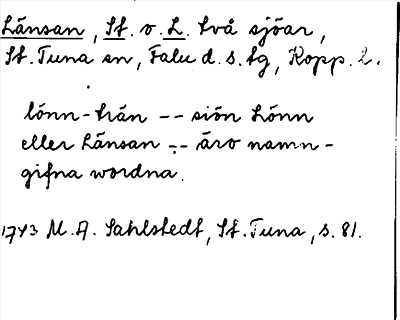 Länsan, St. o. L. två sjöar,
St. Tuna sn, Falu d. s. tg, Kopp. l.
lönn-trän -- siön Lönn
eller Länsan -- äro namn-
gifna wordna.
1743 M. A. Sahlstedt, St. Tuna, s. 81.